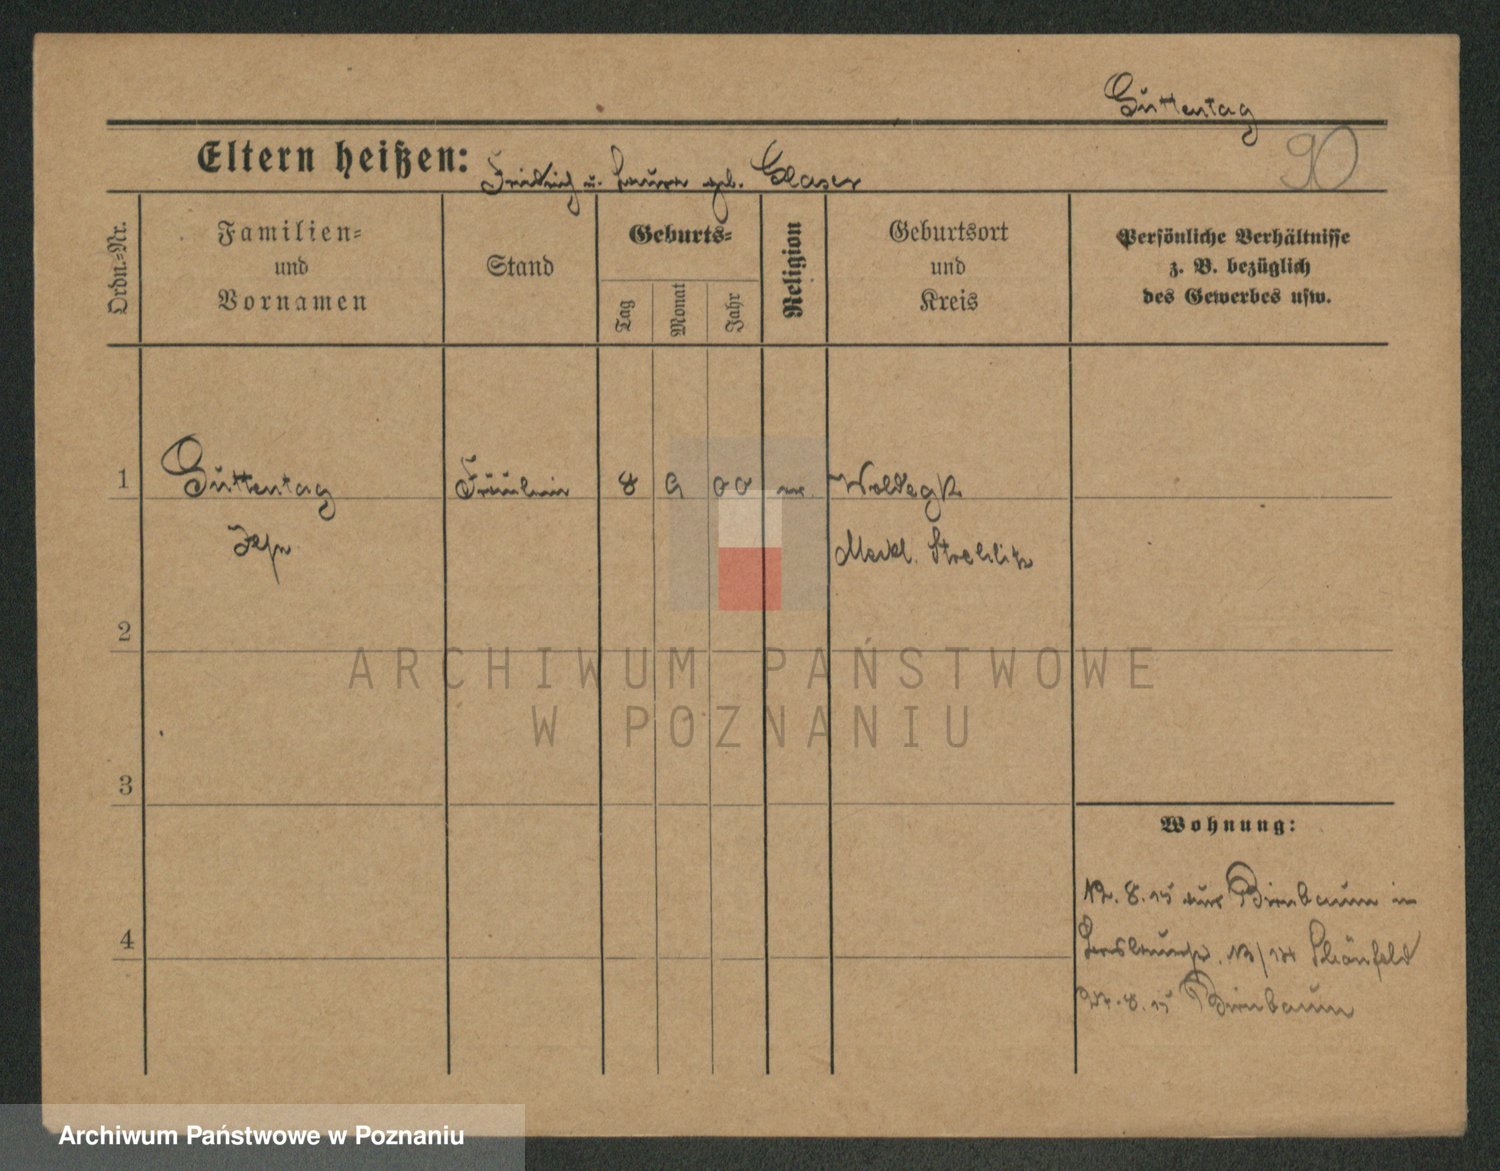 Guttentag
90
Eltern heißen: Friedrich u. Laura geb. Glaser
Ordn.=Nr.
Familien=
und
Vornamen
Stand
Geburts=
Tag
Monat
Jahr
Religion
Geburtsort
und
Kreis
Persönliche Verhältnisse
z. B. bezüglich
des Gewerbes usw.
1
Guttentag
Fräulein
8
9
00
Woldegk
Ilse
Meckl. Strelitz
2
ARCHIWUM PAŃSTWOWE
W POZNANIU
3
Wohnung:
12. 8. 15 aus Birnbaum in
4
Schönfeld
8. 15 Birnbaum
Archiwum Państwowe w Poznaniu